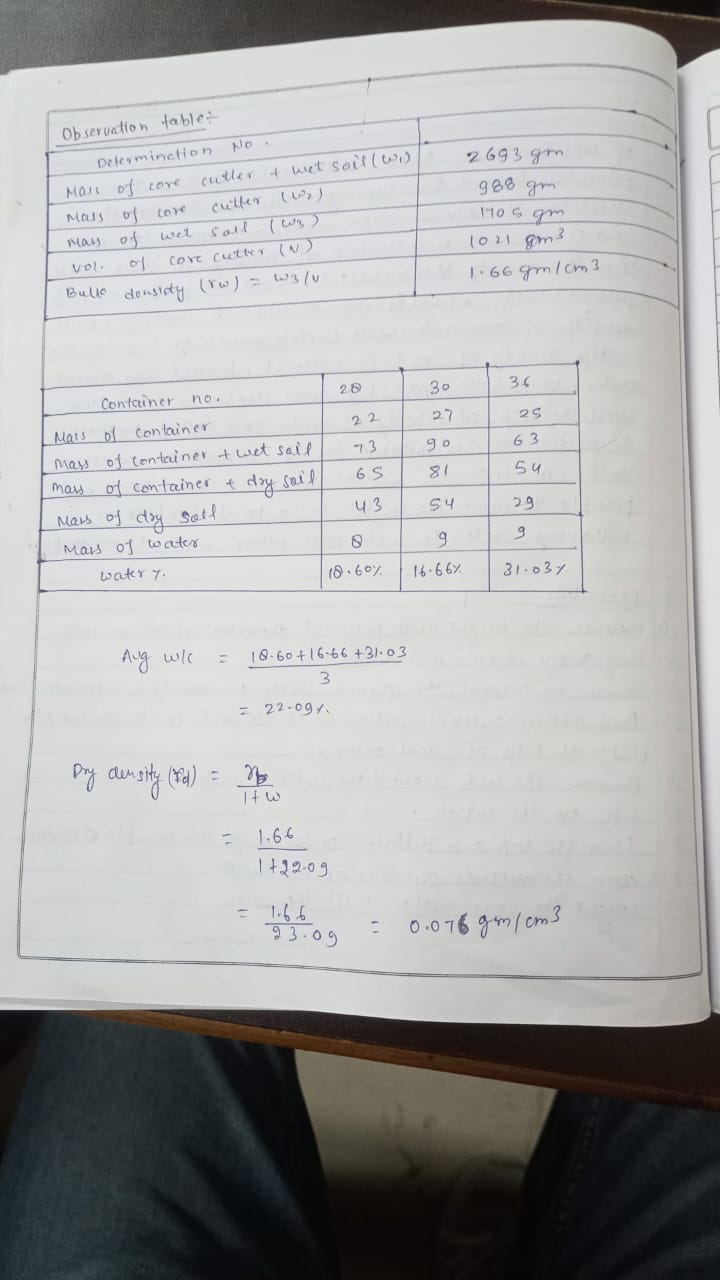 Observation table:-
Determination No.
Mass of core cutter + wet soil (w₁) 2693 gm
Mass of core cutter (w₂) 988 gm
Mass of wet soil (w₃) 1705 gm
Vol. of core cutter (V) 1021 gm³
Bulk density (rw) = w3/v 1.66 gm/cm3
Container no. 28 30 36
Mass of container 22 27 25
Mass of container + wet soil 73 90 63
Mass of container + dry soil 65 81 54
Mass of dry soil 43 54 29
Mass of water 8 9 9
water %. 18.60% 16.66% 31.03%
Avg w/c = 18.60+16.66+31.03
3
= 22.09%.
Dry density (γd) = γb
1+w
= 1.66
1+22.09
= 1.66
23.09
= 0.076 gm/cm3